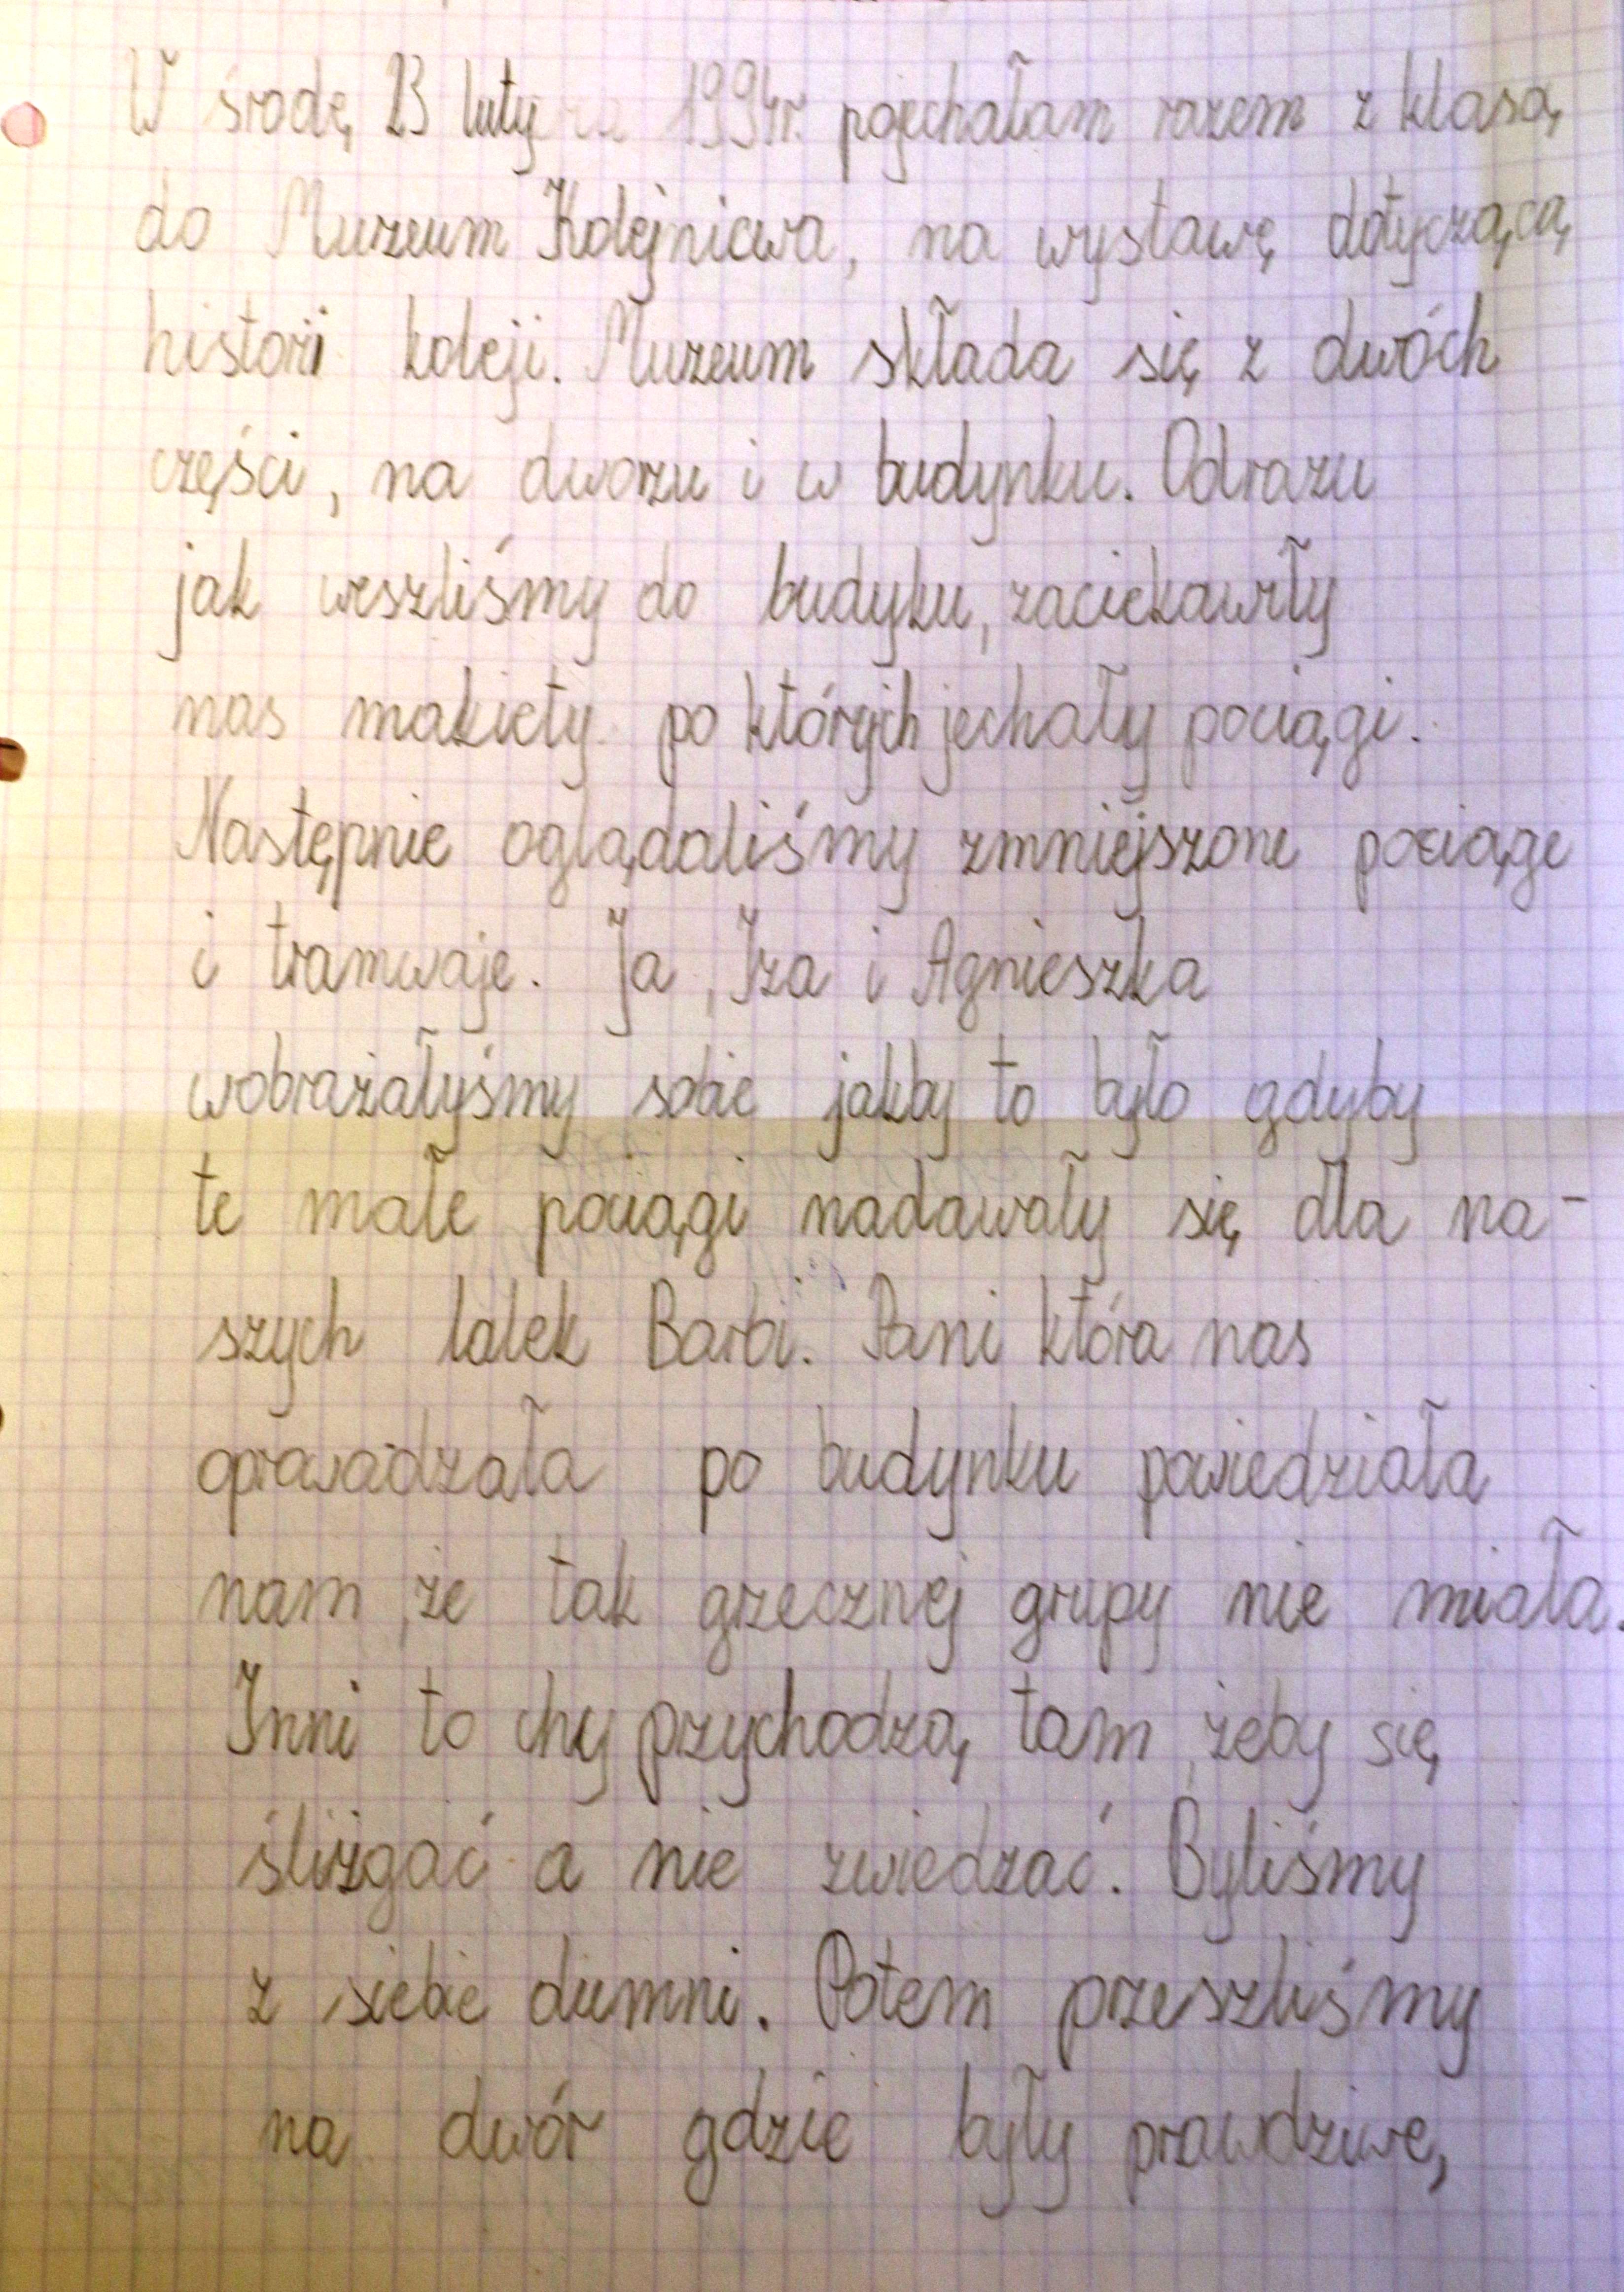 W środę 23 luty 1994r. pojechałam razem z klasą
do Muzeum Kolejnictwa, na wystawę dotyczącą
histori koleji. Muzeum składa się z dwóch
części, na dworzu i w budynku. Odrazu
jak weszliśmy do budyku, zaciekawiły
nas makiety po których jechały pociągi.
Następnie oglądaliśmy zmniejszone pociąge
i tramwaje. Ja, Iza i Agnieszka
wobrażałyśmy sobie jakby to było gdyby
te małe pociągi nadawały się dla na-
szych lalek Barbi. Pani która nas
oprowadzała po budynku powiedziała
nam, że tak grzecznej grupy nie miała.
Inni to przychodzą tam, żeby się
śliżgać a nie zwiedzać. Byliśmy
z siebie dumni. Potem przeszliśmy
na dwór gdzie były prawdziwe,